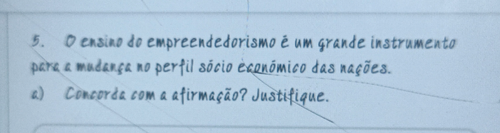 5. O ensino do empreendedorismo é um grande instrumento
para a mudança no perfil sócio económico das nações.
a) Concorda com a afirmação? Justifique.